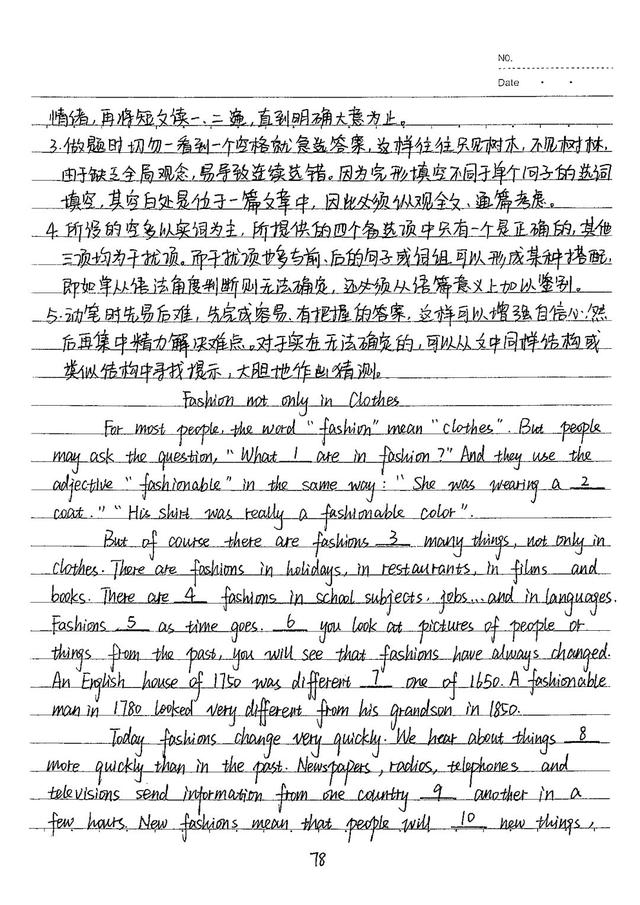 NO.
Date
情绪,再将短文读一、二遍,直到明确大意为止。
3.做题时切勿一看到一个空格就急选答案,这样往往只见树木,不见树林,
由于缺乏全局观念,易导致连续选错。因为完形填空不同于单个句子的选词
填空,其空白处是位于一篇文章中,因此必须纵观全文、通篇考虑。
4.所设的空多以实词为主,所提供的四个备选项中只有一个是正确的,其他
三项均为干扰项。而干扰项也多与前、后的句子或词组可以形成某种搭配,
即如单从语法角度判断则无法确定,还必须从语篇意义上加以鉴别。
5.动笔时先易后难,先完成容易、有把握的答案,这样可以增强自信心,然
后再集中精力解决难点。对于实在无法确定的,可以从文中同样结构或
类似结构中寻找提示,大胆地作出猜测。
Fashion not only in Clothes
For most people, the word "fashion" mean "clothes". But people
may ask the question, "What 1 are in fashion?" And they use the
adjective "fashionable" in the same way: "She was wearing a 2
coat." "His shirt was really a fashionable color".
But of course there are fashions 3 many things, not only in
clothes. There are fashions in holidays, in restaurants, in films and
books. There are 4 fashions in school subjects, jobs... and in languages.
Fashions 5 as time goes. 6 you look at pictures of people or
things from the past, you will see that fashions have always changed.
An English house of 1750 was different 7 one of 1650. A fashionable
man in 1780 looked very different from his grandson in 1850.
Today fashions change very quickly. We hear about things 8
more quickly than in the past. Newspapers, radios, telephones and
televisions send information from one country 9 another in a
few hours. New fashions mean that people will 10 new things,
78